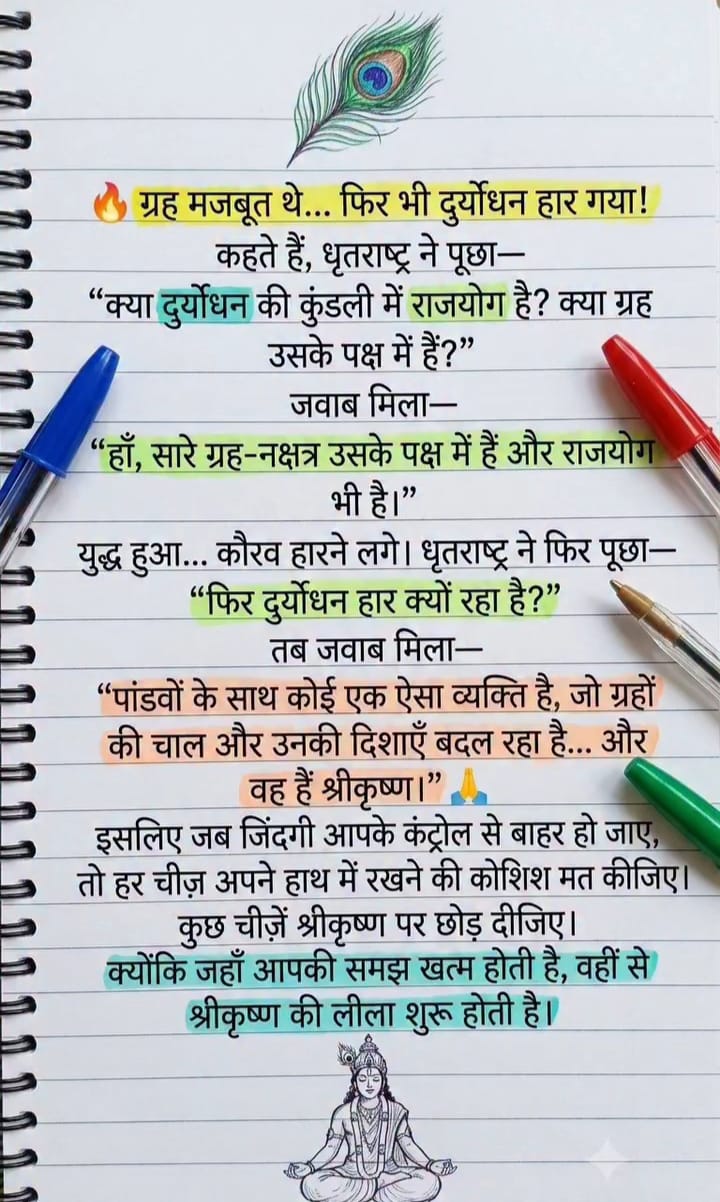 🔥 ग्रह मजबूत थे... फिर भी दुर्योधन हार गया!
कहते हैं, धृतराष्ट्र ने पूछा—
“क्या दुर्योधन की कुंडली में राजयोग है? क्या ग्रह
उसके पक्ष में हैं?”
जवाब मिला—
“हाँ, सारे ग्रह-नक्षत्र उसके पक्ष में हैं और राजयोग
भी है।”
युद्ध हुआ... कौरव हारने लगे। धृतराष्ट्र ने फिर पूछा—
“फिर दुर्योधन हार क्यों रहा है?”
तब जवाब मिला—
“पांडवों के साथ कोई एक ऐसा व्यक्ति है, जो ग्रहों
की चाल और उनकी दिशाएँ बदल रहा है... और
वह हैं श्रीकृष्ण।” 🙏
इसलिए जब जिंदगी आपके कंट्रोल से बाहर हो जाए,
तो हर चीज़ अपने हाथ में रखने की कोशिश मत कीजिए।
कुछ चीज़ें श्रीकृष्ण पर छोड़ दीजिए।
क्योंकि जहाँ आपकी समझ खत्म होती है, वहीं से
श्रीकृष्ण की लीला शुरू होती है।